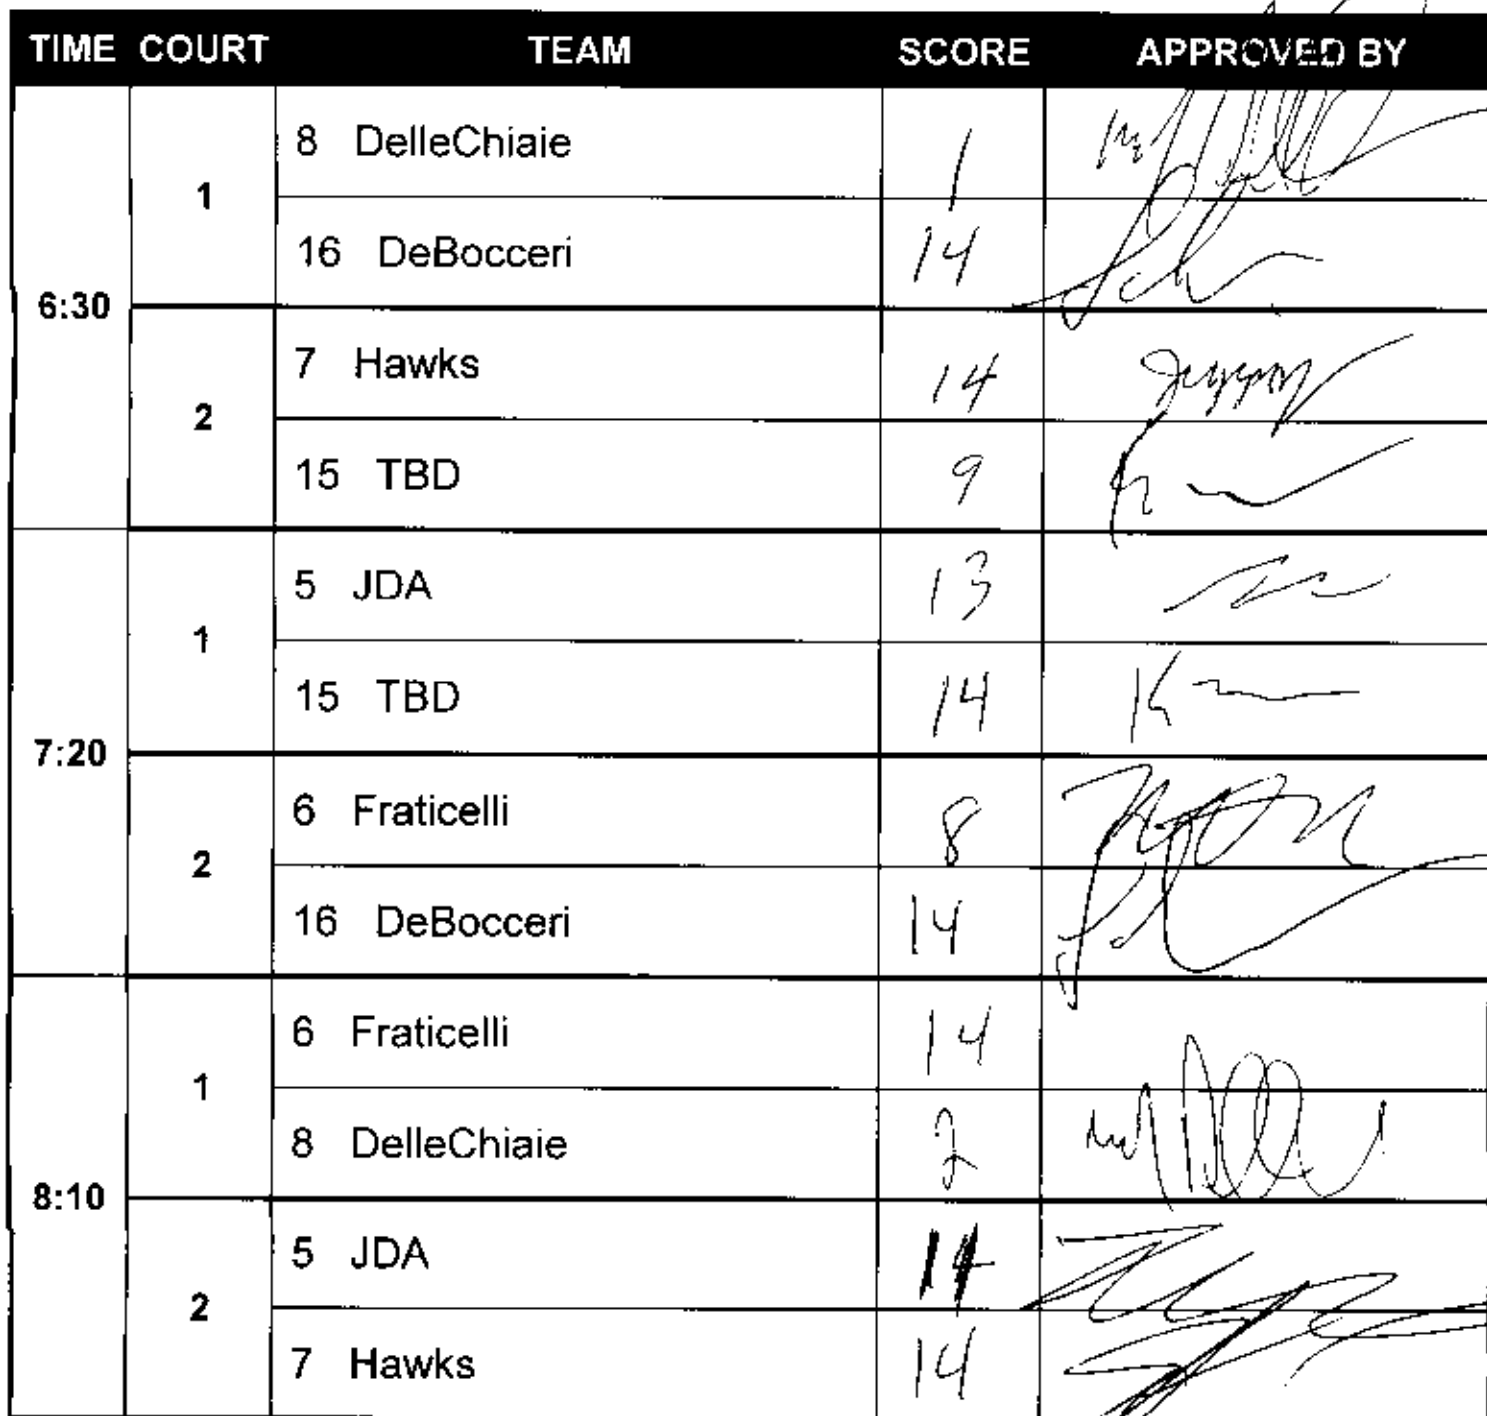 TIME COURT TEAM SCORE APPROVED BY
6:30
1
8 DelleChiaie 1
16 DeBocceri 14
2
7 Hawks 14
15 TBD 9
7:20
1
5 JDA 13
15 TBD 14
2
6 Fraticelli 8
16 DeBocceri 14
8:10
1
6 Fraticelli 14
8 DelleChiaie 2
2
5 JDA
7 Hawks 14